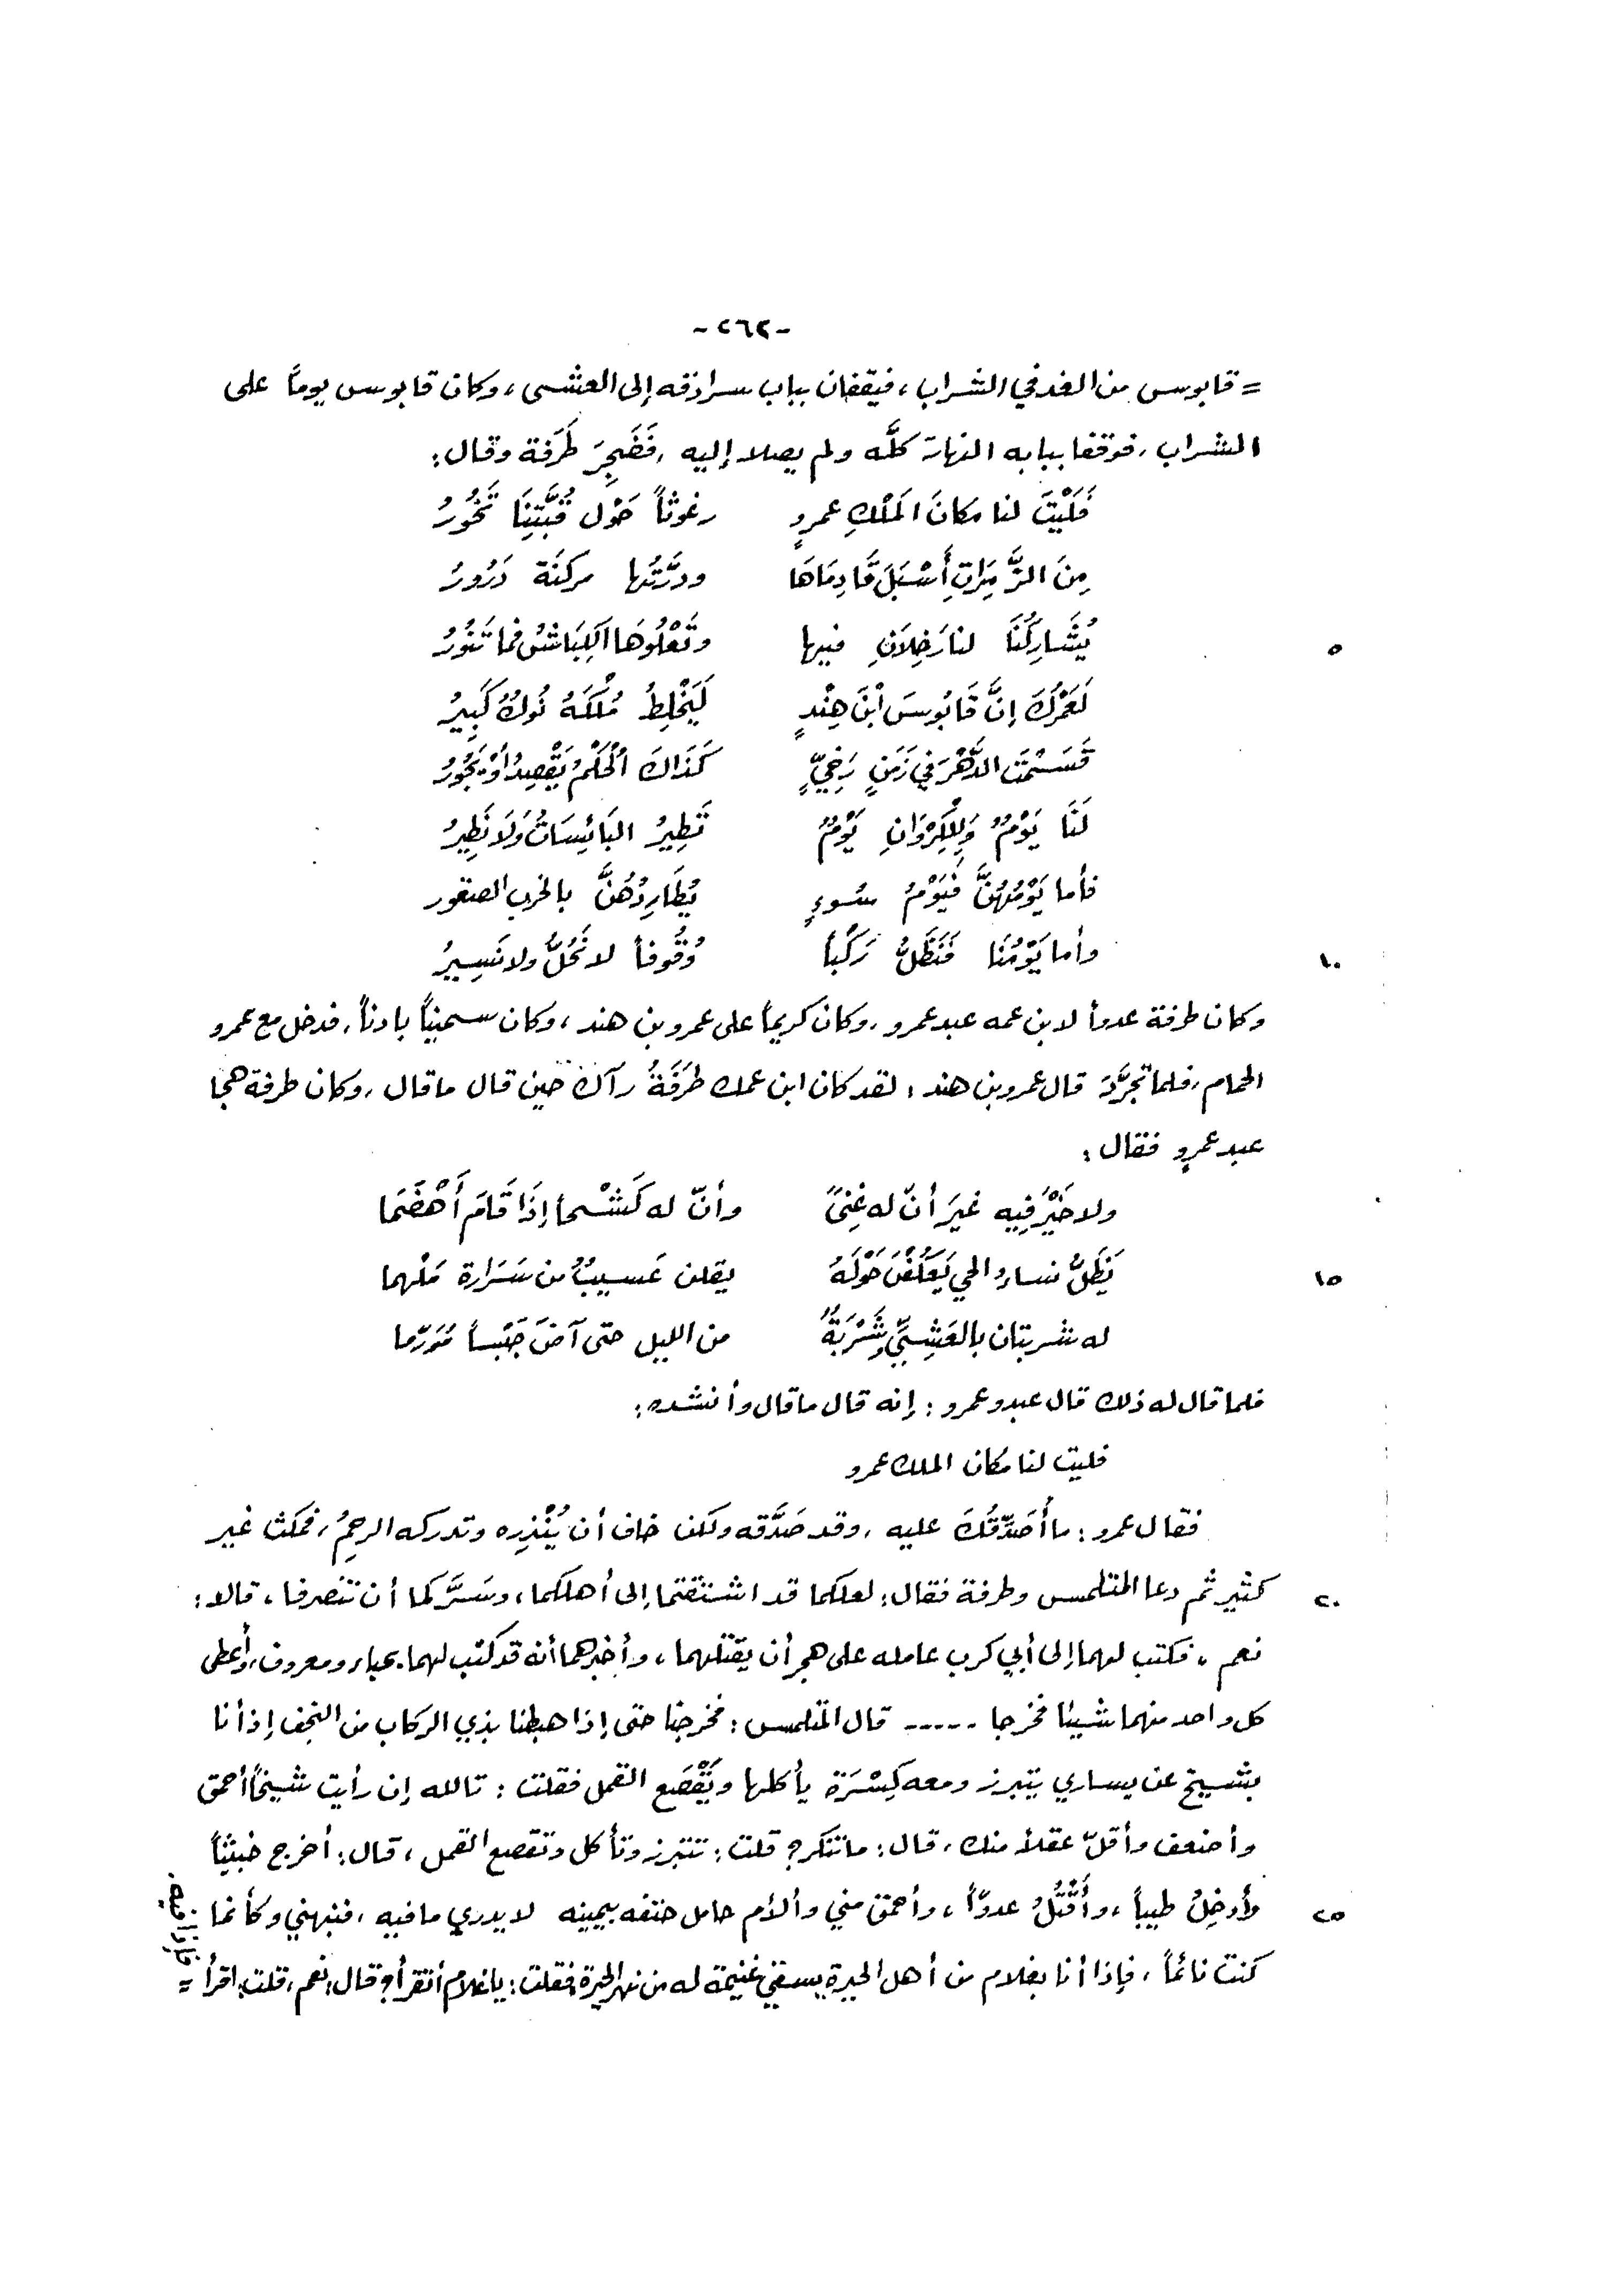 -٢٦٢-
= قابوس من الغد في الشراب، فيقفان بباب سرادقه إلى العشى، وكان قابوس يوماً على
الشراب، فوقفا ببابه النهار كلَّه ولم يصلا إليه، فَضَجِرَ طَرَفة وقال:
فَلَيْتَ لنا مكانَ المَلْكِ عمرٍو رغوثاً حَوْل قُبَّتِنَا تَخُورُ
مِنَ الزَّمِرَاتِ أَسْبَلَ قَادِمَاهَا ودرَّتُها مركنَة دَرُورُ
٥ يُشَارِكُنَا لنا رَخِلاَنِ فيها وتَعْلُوهَا الكِبَاشُ فما تَنُورُ
لَعَمْرُكَ إنَّ قَابُوسَ ابْنَ هِنْدٍ لَيَخْلِطُ مُلْكَهُ نُوكٌ كَبِيرُ
قَسَمْتَ الدَّهْرَ في زَمَنٍ رَخِيٍّ كَذَاكَ الْحُكْمُ يَقْصِدُ أوْ يَجُورُ
لَنَا يَوْمٌ وَلِلْكِرْوَانِ يَوْمٌ تَطِيرُ البَائِسَاتُ وَلاَ نَطِيرُ
فأما يَوْمُهُنَّ فَيَوْمُ سُوءٍ يُطَارِدُهُنَّ بالخرب الصقور
١٠ وأما يَوْمُنَا فَنَظَلُّ رَكْباً وُقُوفاً لا نَحُلُّ ولا نَسِيرُ
وكان طرفة عدواً لابن عمه عبد عمرو، وكان كريماً على عمرو بن هند، وكان سميناً بادناً، فدخل مع عمرو
الحمام، فلما تجرَّدَ قال عمرو بن هند: لقد كان ابن عمك طَرَفَةُ رآك حين قال ما قال، وكان طرفة هجا
عبد عمرٍو فقال:
ولا خَيْرَ فِيه غيرَ أنّ له غِنىً وأنّ له كَشْحاً إذَا قَامَ أَهْضَمَا
١٥ يَظَلُّ نساء الحي يَعْكُفْنَ حَوْلَهُ يقلن عَسيبٌ من سَرَارة مَلْهما
له شربتان بالعَشِيِّ وشَرْبَةٌ من الليل حتى آضَ جَبْساً مُوَرّما
فلما قال له ذلك قال عبدو عمرو: إنه قال ما قال وأنشده:
فليت لنا مكان الملك عمرو
فقال عمرو: ما أُصَدِّقُكَ عليه، وقد صَدَّقه ولكن خاف أن يُنْذِره وتدركه الرحِمُ، فمكث غير
٢٠ كثير ثم دعا المتلمس وطرفة فقال: لعلكما قد اشتقتما إلى أهلكما، وسَرَّكما أن تنصرفا، قالا:
نعم، فكتب لهما إلى أبي كرب عامله على هجر أن يقتلهما، وأخبرهما أنه قد كتب لهما بحباء ومعروف، وأعطى
كل واحد منهما شيئا فخرجا ----- قال المتلمس: فخرجنا حتى إذا هبطنا بذي الركاب من النجف إذ أنا
بشيخ عن يساري يتبرز ومعه كِسْرَة يأكلها ويَقْصَع القمل فقلت: تالله إن رأيت شيخاً أحمق
وأضعف وأقلّ عقلاً منك، قال: ما تنكر؟ قلت: تتبرز وتأكل وتقصع القمل، قال: أخرج خبيثاً
٢٥ وأُدخِلُ طيباً، وأُقَتِّلُ عدوّاً، وأحمق مني وألأم حامل حتفه بيمينه لا يدري ما فيه، فنبهني وكأنما
كنت نائماً، فإذا أنا بغلام من أهل الحيرة يسقي غنيمة له من نهر الحيرة فقلت: يا غلام أتقرأ؟ قال: نعم، قلت: اقرأ =